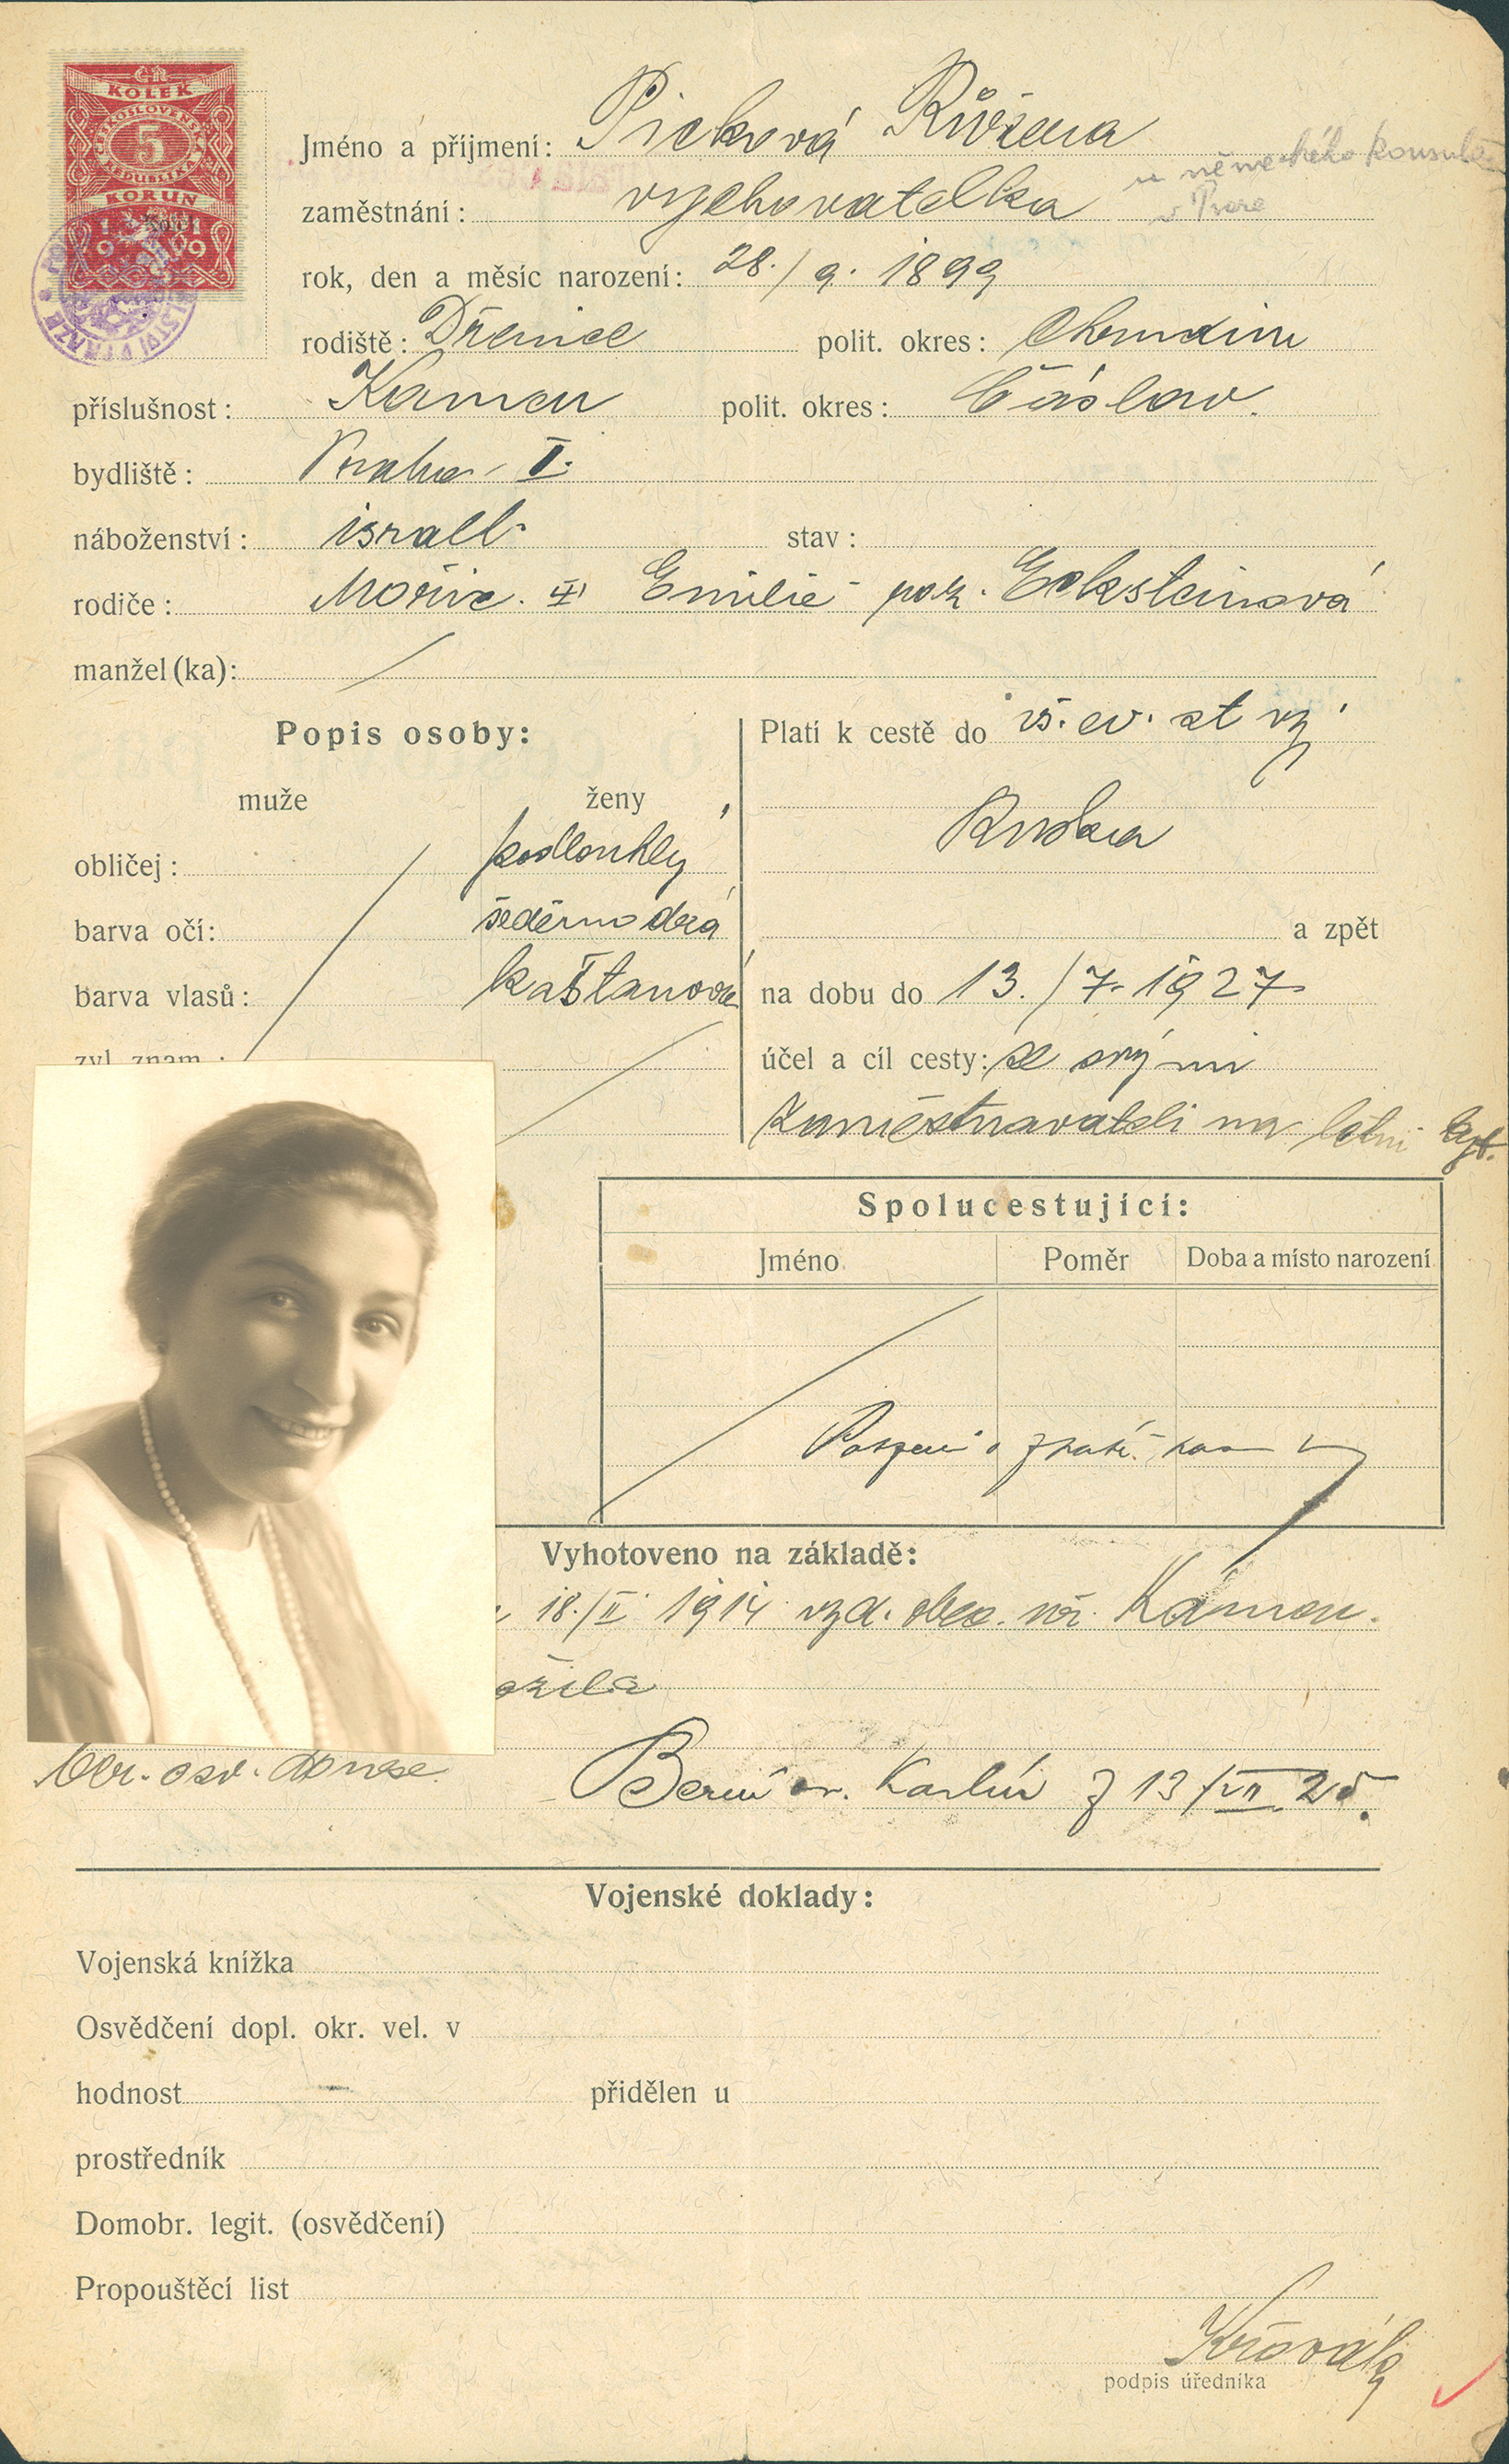 ČR
KOLEK
ČESKOSLOVENSKÁ
5
REPUBLIKA
KORUN
1919
Jméno a příjmení: Picková Růžena
zaměstnání: vychovatelka u německého konsula
v Praze
rok, den a měsíc narození: 28./9. 1899
rodiště: Dřenice polit. okres: Chrudim
příslušnost: Kamen polit. okres: Čáslav.
bydliště: Praha - I.
náboženství: israel. stav:
rodiče: Mořic. Emilie roz. Ecksteinová
manžel(ka):
Popis osoby:
muže ženy
obličej: podlouhlý
barva očí: šeděmodrá
barva vlasů: kaštanová
zvl. znam.:
Platí k cestě do vš. ev. st vyj
Ruska
a zpět
na dobu do 13./7. 1927
účel a cíl cesty: se svými
zaměstnavateli na letní byt.
Spolucestující:
Jméno Poměr Doba a místo narození
Vyhotoveno na základě:
18./II. 1914 vyd. obec. úř. Kámen.
ožila
Berní Karlín z 13/VII 25.
Vojenské doklady:
Vojenská knížka
Osvědčení dopl. okr. vel. v
hodnost přidělen u
prostředník
Domobr. legit. (osvědčení)
Propouštěcí list
podpis úředníka